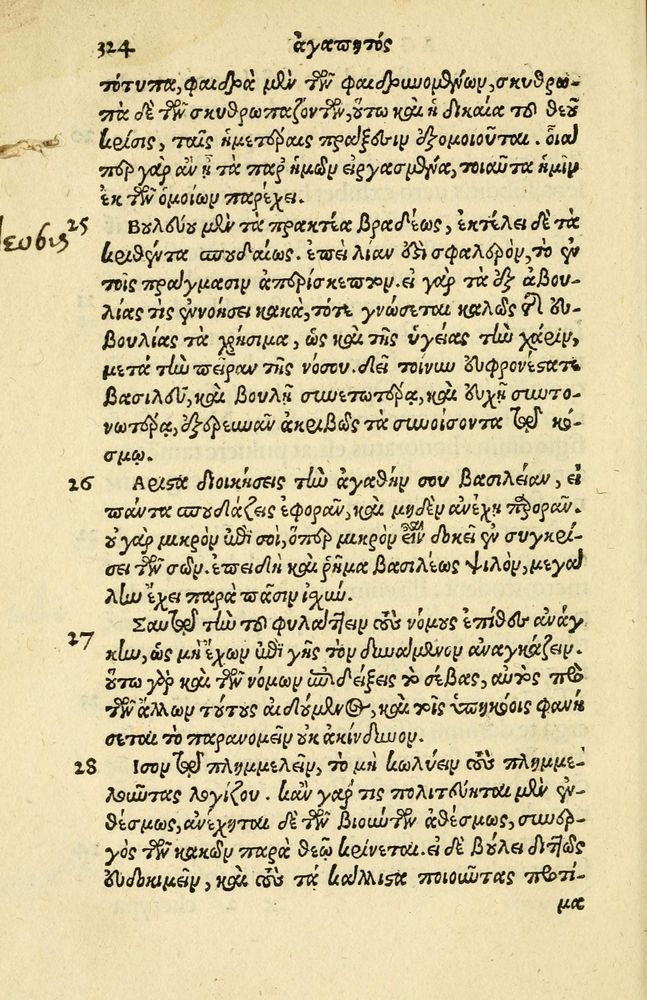 324 ἀγαπητός
τότυπα, φαιδρὰ μὲν τῶν φαιδρυνομένων, σκυθρω-
πὰ δὲ τῶν σκυθρωπαζόντων, οὕτω καὶ ἡ δικαία τοῦ θεοῦ
κρίσις, ταῖς ἡμετέραις πράξεσιν ἐξομοιοῦται. οἷα
περ γὰρ ἂν ᾖ τὰ παρ' ἡμῶν εἰργασμένα, τοιαῦτα ἡμῖν
ἐκ τῶν ὁμοίων παρέχει.
25 Βουλεύου μὲν τὰ πρακτέα βραδέως, ἐκτέλει δὲ τὰ
κριθέντα σπουδαίως. ἐπεὶ λίαν ἐστὶ σφαλερὸν, τὸ ἐν
τοῖς πράγμασιν ἀπερίσκεπτον. εἰ γὰρ τὰ ἐξ ἀβου-
λίας τὶς ἐννοήσει κακὰ, τότε γνώσεται καλῶς τῆς εὐ-
βουλίας τὰ χρήσιμα, ὡς καὶ τῆς ὑγείας τὴν χάριν,
μετὰ τὴν πεῖραν τῆς νόσου. δεῖ τοίνυν εὐφρονέστατε
βασιλεῦ, καὶ βουλῇ συνετωτέρᾳ, καὶ εὐχῇ συντο-
νωτέρᾳ, ἐξερευνᾶν ἀκριβῶς τὰ συνοίσοντα τῷ κό-
σμῳ.
26 Αριστα διοικήσεις τὴν ἀγαθήν σου βασιλείαν, εἰ
πάντα σπουδάζεις ἐφορᾶν, καὶ μηδὲν ἀνέχῃ παρορᾶν.
οὐ γὰρ μικρὸν ἐπὶ σοὶ, ὅπερ μικρὸν εἶναι δοκεῖ ἐν συγκρί-
σει τῶν σῶν. ἐπειδὴ καὶ ῥῆμα βασιλέως ψιλὸν, μεγάλ
λην ἔχει παρὰ πᾶσιν ἰχύν.
27 Σαυτῷ τὴν τοῦ φυλάττειν τοὺς νόμους ἐπίθες ἀνάγ
κην, ὡς μὴ ἔχων ἐπὶ γῆς τὸν δυνάμενον ἀναγκάζειν.
οὕτω γὰρ καὶ τῶν νόμων ἐπιδείξεις τὸ σέβας, αὐτὸς πρὸ
τῶν ἄλλων τούτους αἰδούμενος, καὶ τοῖς ὑπηκόοις φανή
σεται τὸ παρανομεῖν οὐκ ἀκίνδυνον.
28 Ισον τῷ πλημμελεῖν, τὸ μὴ κωλύειν τοὺς πλημμε-
λοῦντας λογίζου. κἄν γάρ τις πολιτεύηται μὲν ἐν-
θέσμως, ἀνέχηται δὲ τῶν βιούντων ἀθέσμως, συνερ-
γὸς τῶν κακῶν παρὰ θεῷ κρίνεται. εἰ δὲ βούλει διττῶς
εὐδοκιμεῖν, καὶ τοὺς τὰ κάλλιστα ποιοῦντας προτί-
μα